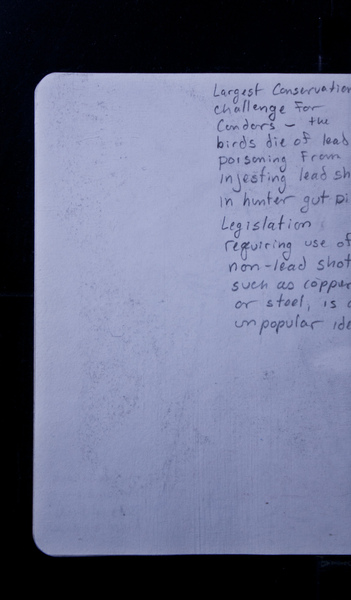 Largest Conservation
challenge for
Condors – the
birds die of lead
poisoning from
injesting lead sh
in hunter gut pi
Legislation
requiring use of
non-lead shot
such as copper
or steel, is a
unpopular ide